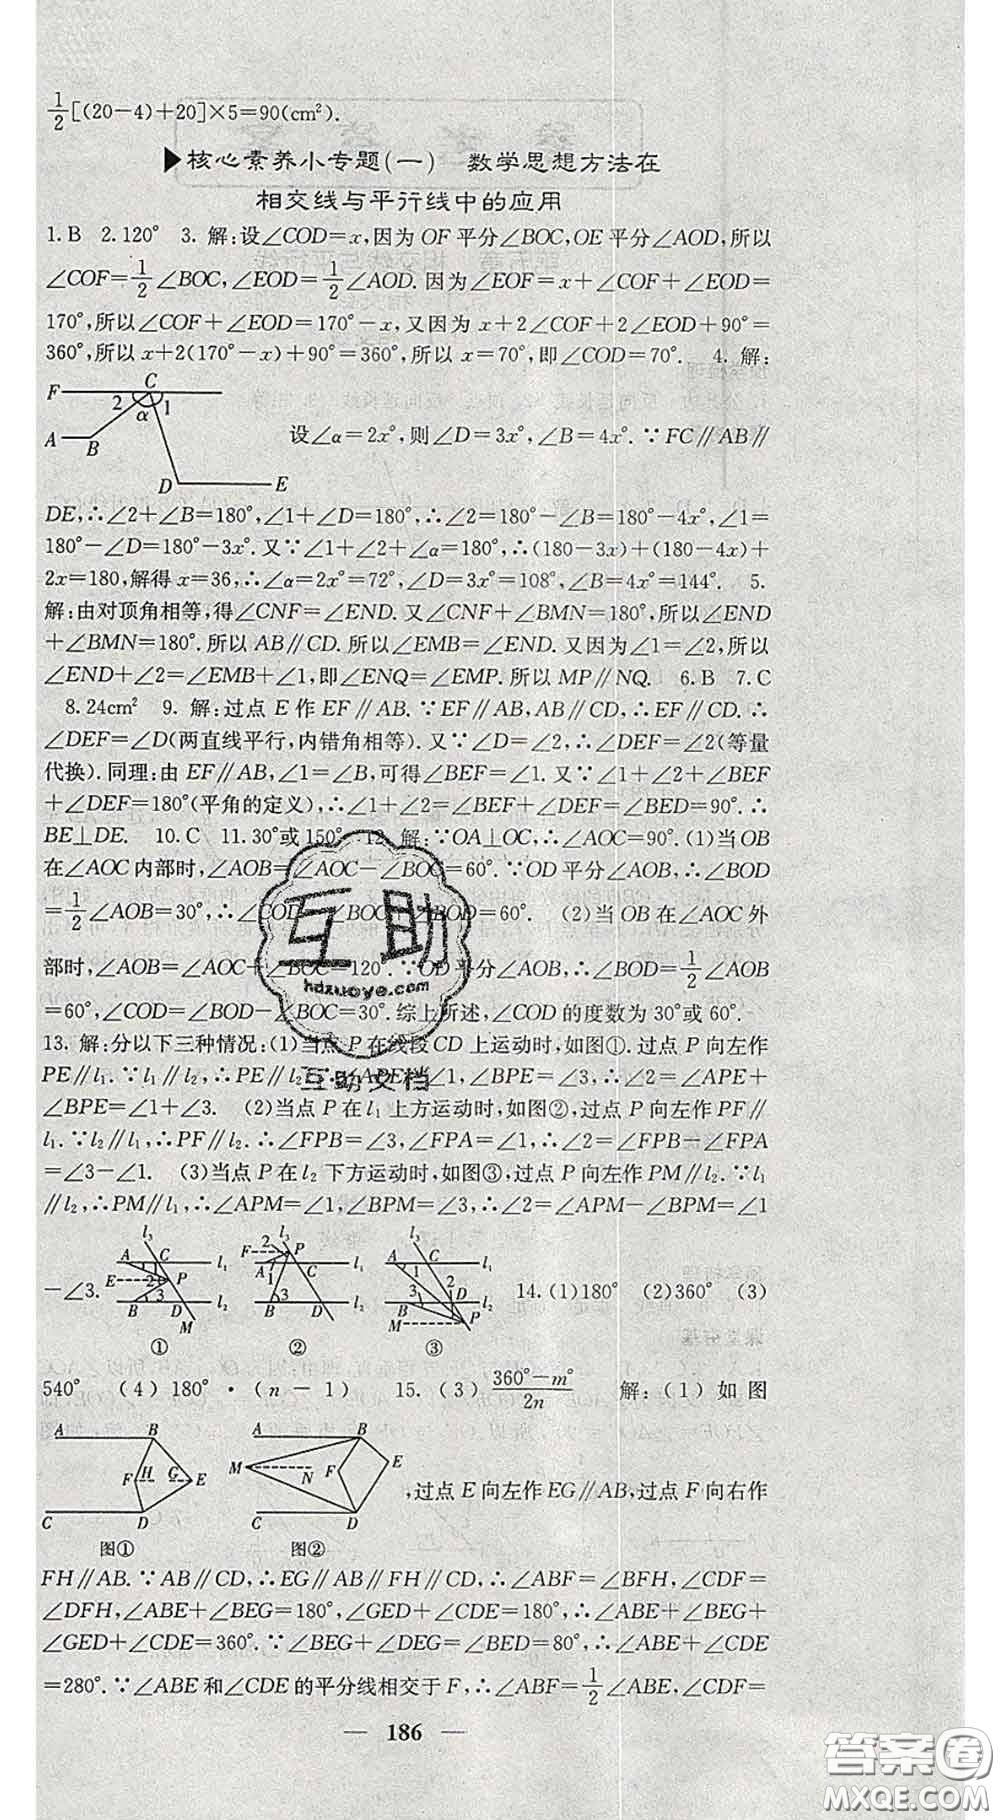 1/2[(20-4)+20]×5=90(cm²).
▶核心素养小专题(一) 数学思想方法在
相交线与平行线中的应用
1.B 2.120° 3. 解:设∠COD=x,因为 OF 平分∠BOC,OE 平分∠AOD,所以
∠COF=1/2∠BOC,∠EOD=1/2∠AOD. 因为∠EOF=x+∠COF+∠EOD=
170°,所以∠COF+∠EOD=170°-x,又因为 x+2∠COF+2∠EOD+90°=
360°,所以 x+2(170°-x)+90°=360°,所以 x=70°,即∠COD=70°. 4. 解:
F C 2 α 1 A B D E
设∠α=2x°,则∠D=3x°,∠B=4x°.∵FC∥AB∥
DE,∴∠2+∠B=180°,∠1+∠D=180°,∴∠2=180°-∠B=180°-4x°,∠1=
180°-∠D=180°-3x°.又∵∠1+∠2+∠α=180°,∴(180-3x)+(180-4x)+
2x=180,解得 x=36,∴∠α=2x°=72°,∠D=3x°=108°,∠B=4x°=144°. 5.
解:由对顶角相等,得∠CNF=∠END. 又∠CNF+∠BMN=180°,所以∠END
+∠BMN=180°. 所以 AB∥CD. 所以∠EMB=∠END. 又因为∠1=∠2,所以
∠END+∠2=∠EMB+∠1,即∠ENQ=∠EMP. 所以 MP∥NQ. 6.B 7.C
8.24cm² 9. 解:过点 E 作 EF∥AB.∵EF∥AB,AB∥CD,∴EF∥CD.∴
∠DEF=∠D(两直线平行,内错角相等). 又∵∠D=∠2,∴∠DEF=∠2(等量
代换). 同理:由 EF∥AB,∠1=∠B,可得∠BEF=∠1. 又∵∠1+∠2+∠BEF
+∠DEF=180°(平角的定义),∴∠1+∠2=∠BEF+∠DEF=∠BED=90°.∴
BE⊥DE. 10.C 11.30°或 150° 12. 解:∵OA⊥OC,∴∠AOC=90°. (1)当 OB
在∠AOC 内部时,∠AOB=∠AOC-∠BOC=60°.∵OD 平分∠AOB,∴∠BOD
=1/2∠AOB=30°,∴∠COD=∠BOC+∠BOD=60°. (2)当 OB 在∠AOC 外
部时,∠AOB=∠AOC+∠BOC=120°.∵OD 平分∠AOB,∴∠BOD=1/2∠AOB
=60°,∠COD=∠BOD-∠BOC=30°. 综上所述,∠COD 的度数为 30°或 60°.
13. 解:分以下三种情况:(1)当点 P 在线段 CD 上运动时,如图①. 过点 P 向左作
PE∥l₁.∵l₁∥l₂,∴PE∥l₂.∴∠APE=∠1,∠BPE=∠3.∴∠2=∠APE+
∠BPE=∠1+∠3. (2)当点 P 在 l₁ 上方运动时,如图②,过点 P 向左作 PF∥
l₁.∵l₂∥l₁,∴PF∥l₂.∴∠FPB=∠3,∠FPA=∠1,∴∠2=∠FPB-∠FPA
=∠3-∠1. (3)当点 P 在 l₂ 下方运动时,如图③,过点 P 向左作 PM∥l₂.∵l₁
∥l₂,∴PM∥l₁,∴∠APM=∠1,∠BPM=∠3,∴∠2=∠APM-∠BPM=∠1
-∠3.
l₃ A C l₁ 1 E 2 P 3 B D l₂ M ①
l₃ 2 F P A C l₁ 1 3 B D l₂ ②
l₃ A C l₁ 1 2 3 B D l₂ M P ③
14.(1)180° (2)360° (3)
540° (4)180°·(n-1) 15.(3) (360°-m°)/2n 解:(1)如图
A B F H G E C D 图①
A B M N F E C D 图②
,过点 E 向左作 EG∥AB,过点 F 向右作
FH∥AB.∵AB∥CD,∴EG∥AB∥FH∥CD,∴∠ABF=∠BFH,∠CDF=
∠DFH,∠ABE+∠BEG=180°,∠GED+∠CDE=180°,∴∠ABE+∠BEG+
∠GED+∠CDE=360°.∵∠BEG+∠DEG=∠BED=80°,∴∠ABE+∠CDE
=280°.∵∠ABE 和∠CDE 的平分线相交于 F,∴∠ABF=1/2∠ABE,∠CDF=
— 186 —
互助
hdzuoye.com
互助文档
答案圈
MXQE.COM